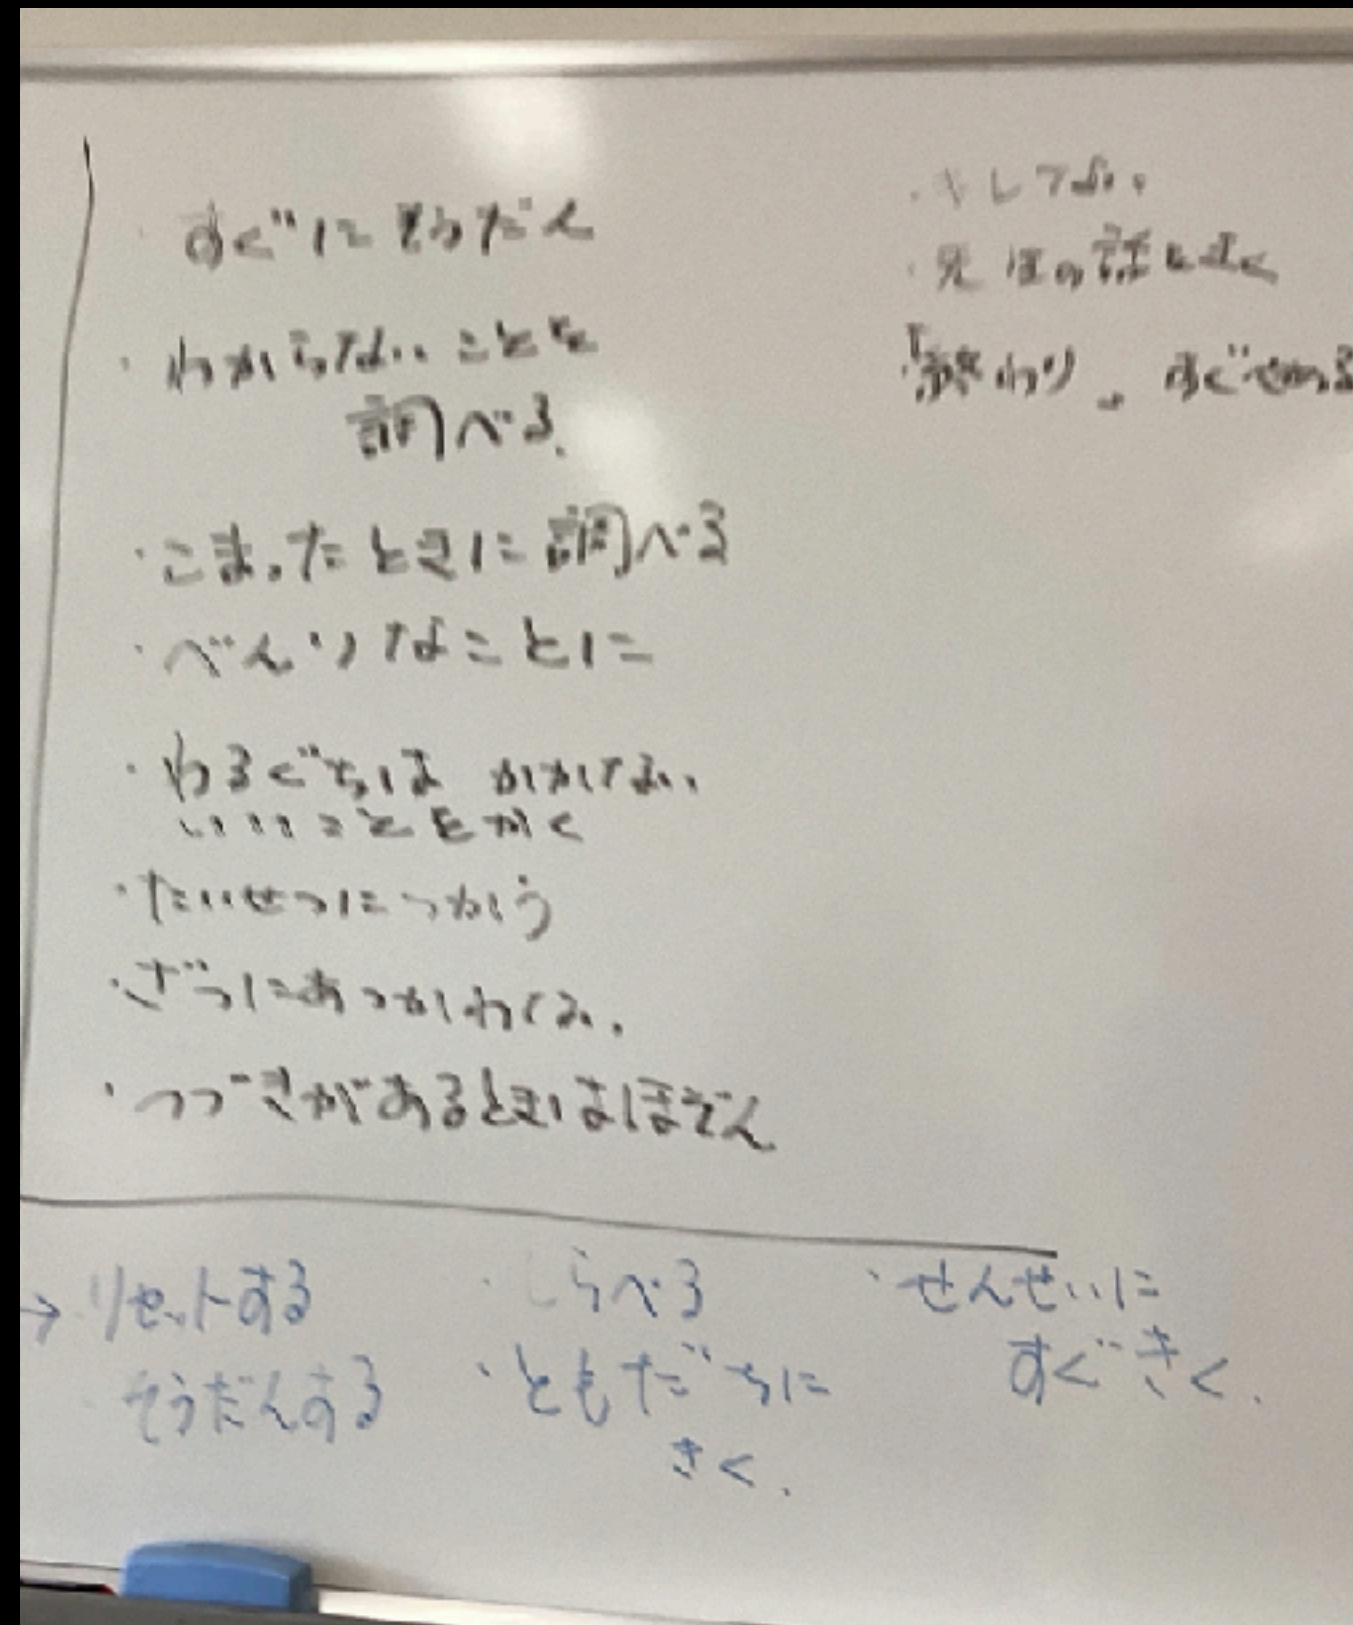 すぐにそうだん
・わからないことを
調べる.
・こまったときに調べる
・べんりなことに
・わるぐちは かかない
いいことをかく
・たいせつにつかう
・ざつにあつかわない.
・つづきがあるときはほぞん
先生の話をきく
「終わり」すぐやめる
→リセットする
そうだんする
・しらべる
・ともだちに
きく.
・せんせいに
すぐきく.